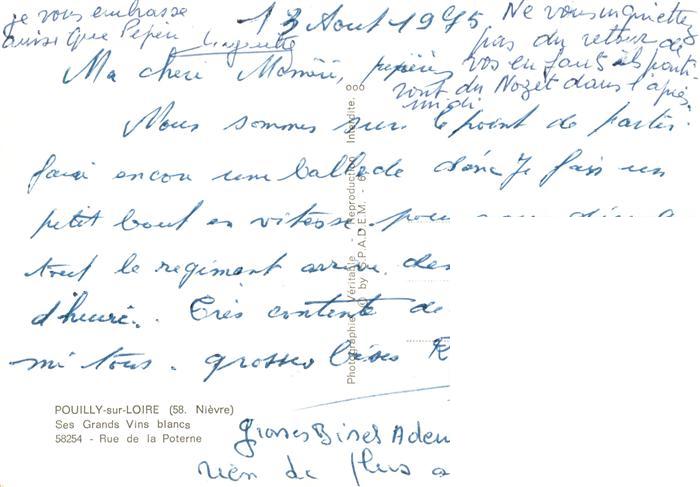 je vous embrasse
ainsi que Pépère
13 Aout 1975
Ne vous inquiettez
pas du retour de
vos enfants ils parti-
ront du Nozet dans l'après
midi
Ma cheri Mémère, pepère,
Nous sommes sur le point de partis
faire encore une ballade donc Je fais un
petit bout en vitesse pour
tout le regiment arrive des
d'heure. Très contente de
mi tous. grosses bises
Photographie Véritable - Reproduction Interdite.
© by S.P.A.D.E.M. -
POUILLY-sur-LOIRE (58. Nièvre)
Ses Grands Vins blancs
58254 - Rue de la Poterne
Grosses Bises
rien de plus a